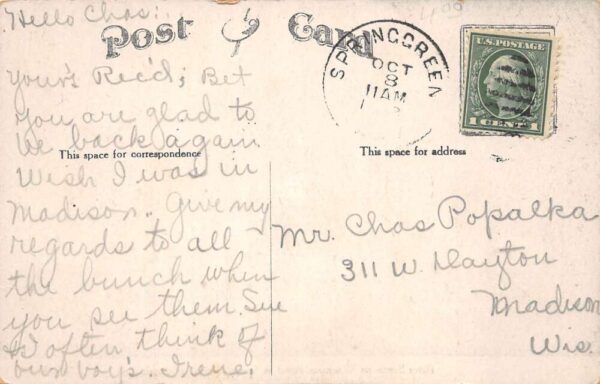 Hello Chas:
Post Card
yours Rec'd; Bet
you are glad to
be back again
Wish I was in
Madison. Give my
regards to all
the bunch when
you see them. Sure
I often think of
our boys. Irene.
This space for correspondence
This space for address
SPRING GREEN
OCT
8
11AM
U.S. POSTAGE
1 CENT 1
Mr. Chas Popalka
311 W. Dayton
Madison
Wis.